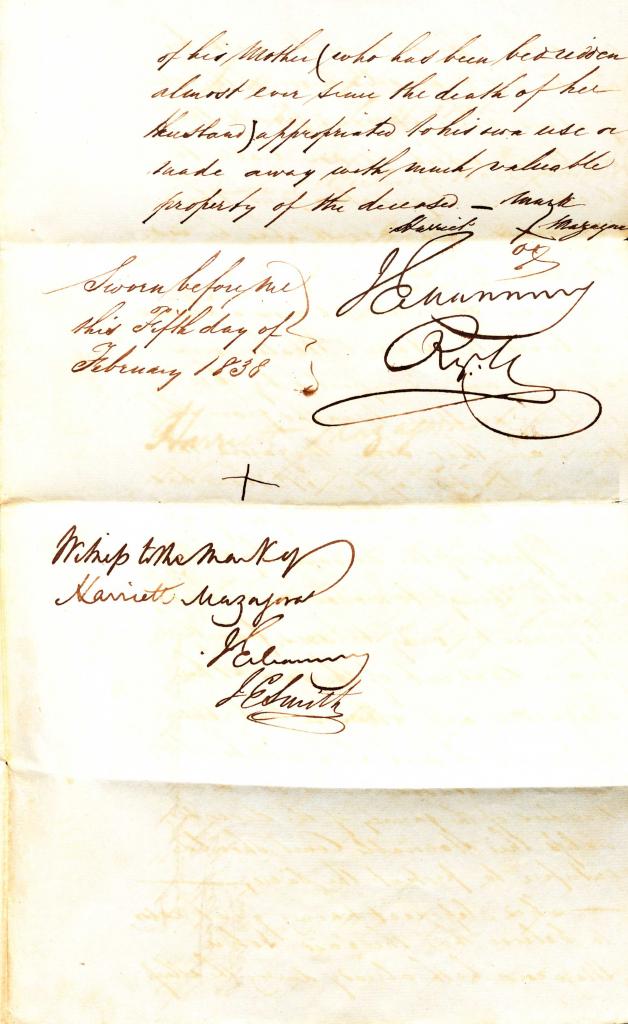 of his Mother (who has been bedridden
almost ever since the death of her
Husband) appropriated to his own use or
made away with much valuable
property of the deceased – mark
Harriet X
of
Sworn before me
this Fifth day of
February 1838
+
Witness to the Mark of
Harriett
J E Smith